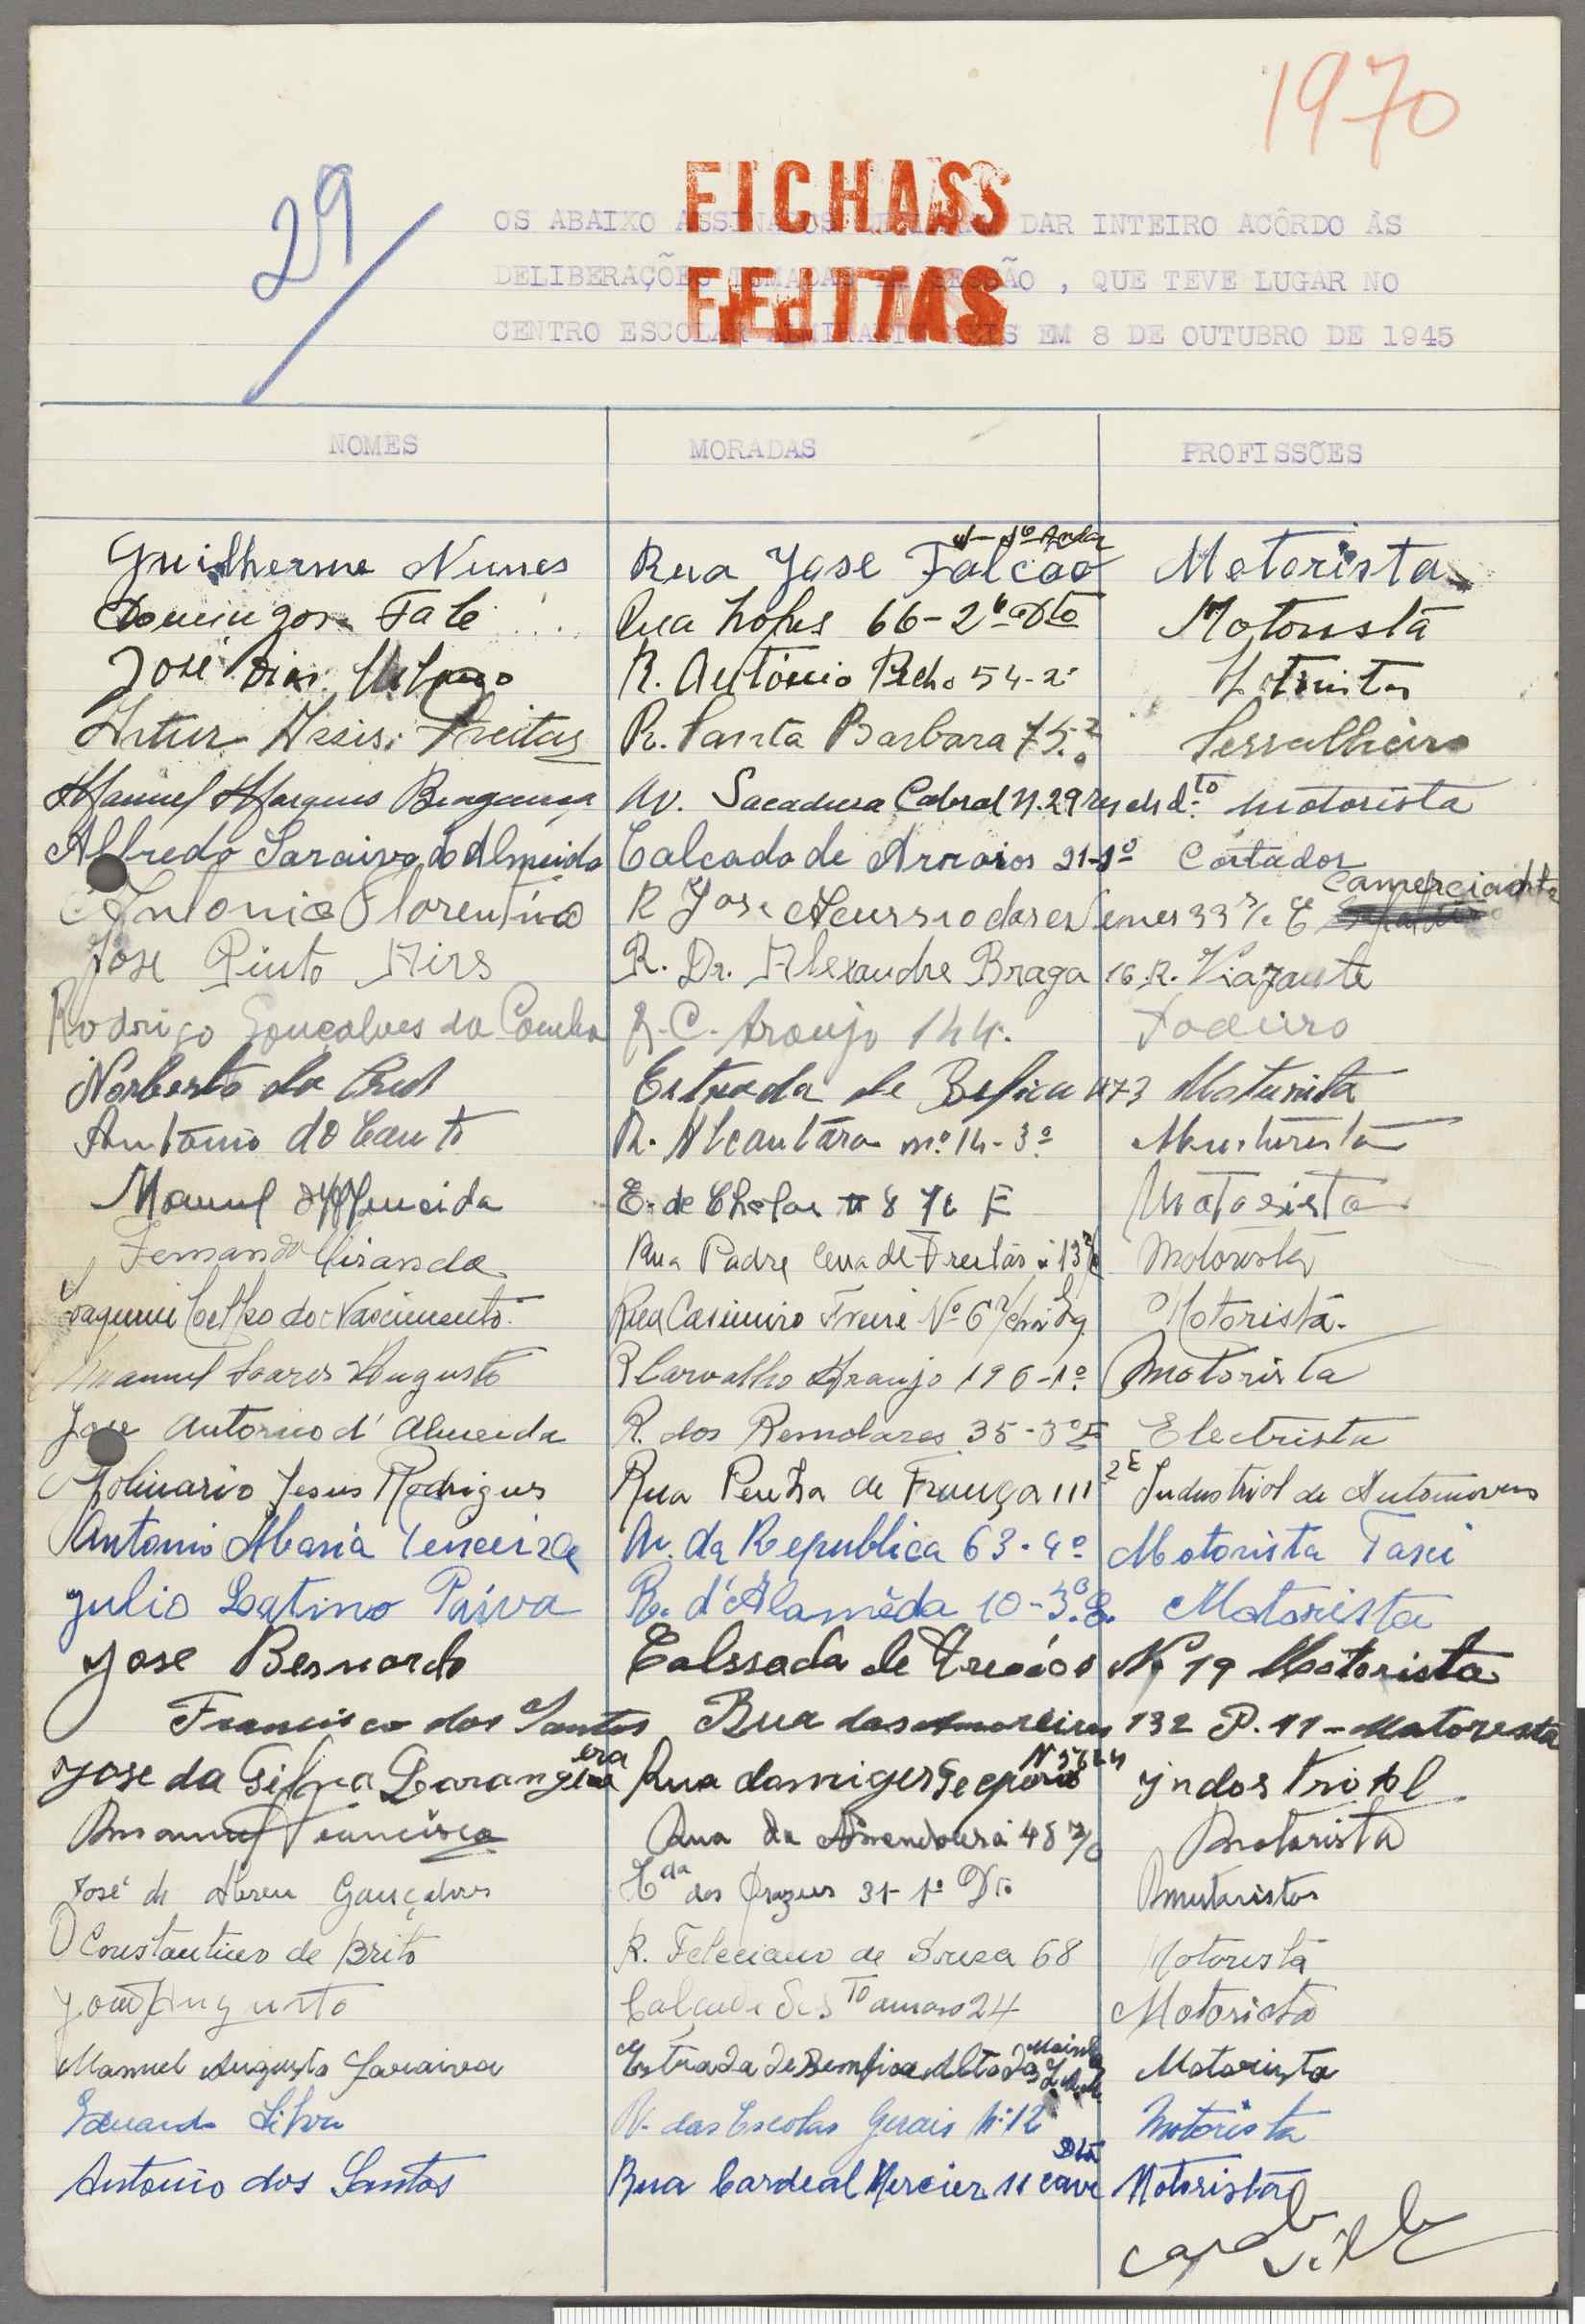 1970
29
FICHAS
FEITAS
OS ABAIXO ASSINADOS DAR INTEIRO ACÔRDO ÀS
DELIBERAÇÕES TOMADAS SESSÃO , QUE TEVE LUGAR NO
CENTRO ESCOLAR ALMIRANTE REIS EM 8 DE OUTUBRO DE 1945
NOMES MORADAS PROFISSÕES
Guilherme Nunes Rua Jose Falcao 1º Andar Motorista
Domingos Rua Lopes 66-2º Dto Motorista
José Dias R. António 54-2º
Artur Assis Freitas R. Santa Barbara 75.2º Serralheiro
Manuel Marques Bragança Av. Sacadura Cabral N.29 d.to motorista
Alfredo Saraiva de Almeida Calcada de Arroios 21-1º Cortador
Antonio Florentino R Jose 33 Comerciante
Jose Pinto Aires R. Dr. Alexandre Braga 16.R. Viajante
Rodrigo Gonçalves da Cunha R.C. Araujo 144. Padeiro
Norberto da Cruz Estrada de Befica 473 Moturista
António do Canto R. Alcantára nº. 14-3º
Manuel d'Almeida E. de Chelas Motorista
Fernando Miranda Rua Padre Sena de Freitas 13 Motorista
Joaquim Coelho do Nascimento Rua Casimiro Freire Nº 6 Motorista.
Manuel Soares Augusto R Carvalho Araujo 196-1º. Motorista
Jose Antonio d' Almeida R. dos Remolares 35-3º E Electrista
Apolinario Jesus Rodrigues Rua Penha de França 111 2 E Industrial de Automoveis
Antonio Maria Teneira Av. da Republica 63-4º Motorista Taxi
Julio Latino Paiva R. d'Alamêda 10-3º.E. Motorista
Jose Bernardo Calssada de Arroios Nº 19 Motorista
Francisco dos Santos Rua das Amoreiras 132 P. 11 - Motorista
Jose da Silva Larangeira Rua
Manuel Francisco Rua da Amendoeira 48 Motorista
José de Abreu Gonçalves Cda dos 31-1º Dto
Constantino de Brito R. Feleciano de Sousa 68 Motorista
Augusto Calçada de S To amaro 24 Motorista
Manuel Augusto Saraiva Estrada de Bemfica Alto da Motorista
Eduardo Silva R. das Escolas Gerais Nº 12 Motorista
Antonio dos Santos Rua Cardeal Mercier 11 cave Dta Motorista